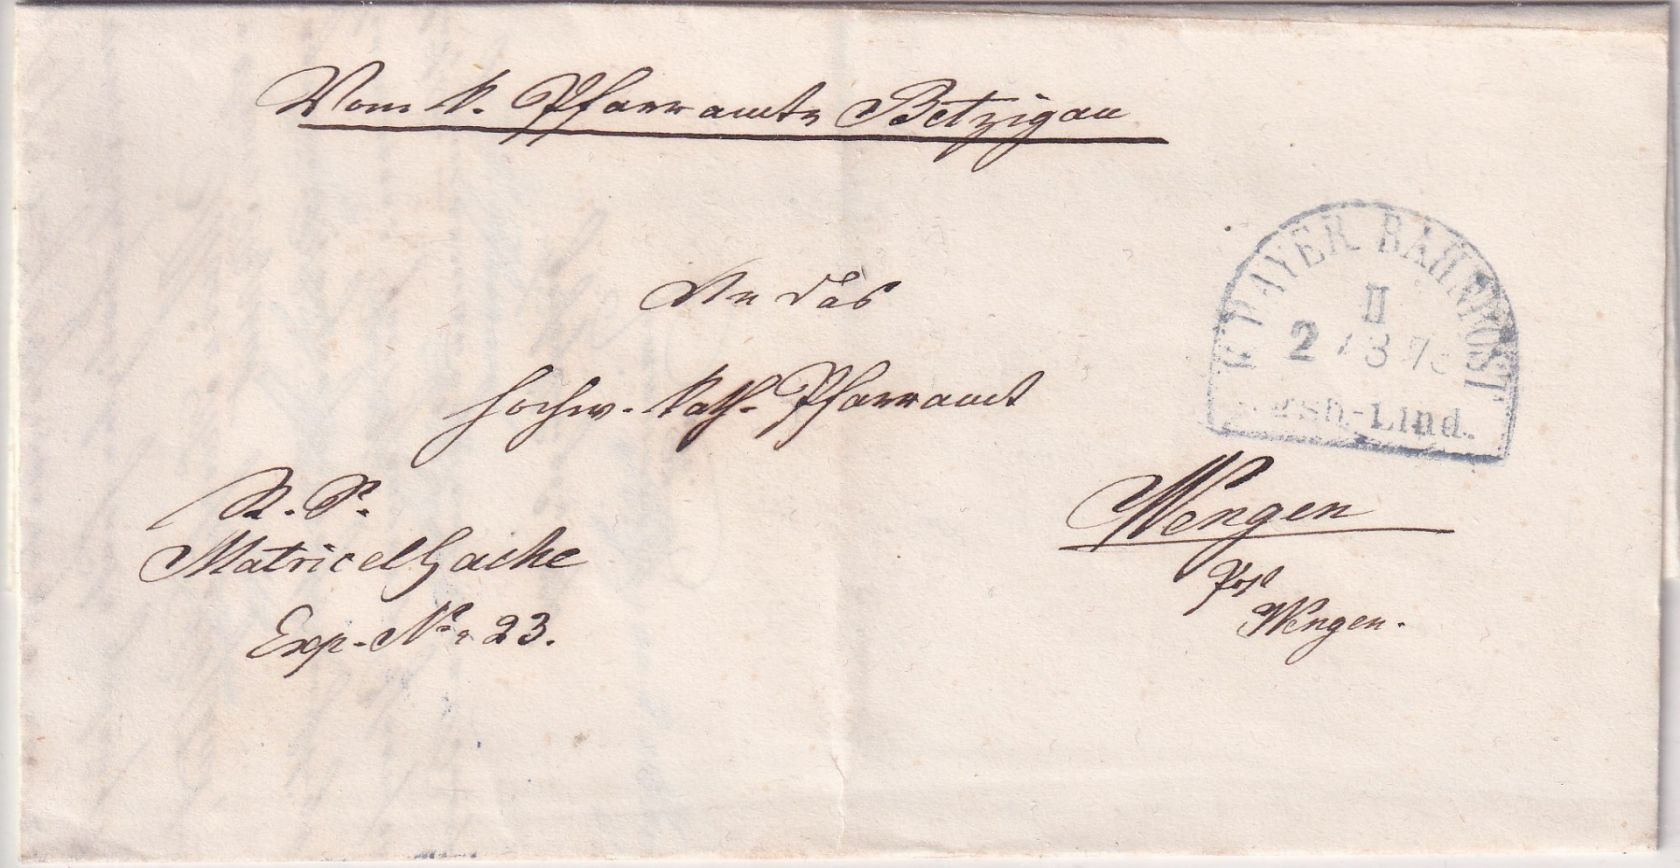 Vom k. Pfarramte Betzigau
An das
hochw. kath. Pfarramt
K. BAYER. BAHNPOST
II
2 3 7
sb.-Lind.
R. S.
Matricelsache
Exp. No. 23.
Wengen
Post
Wengen.